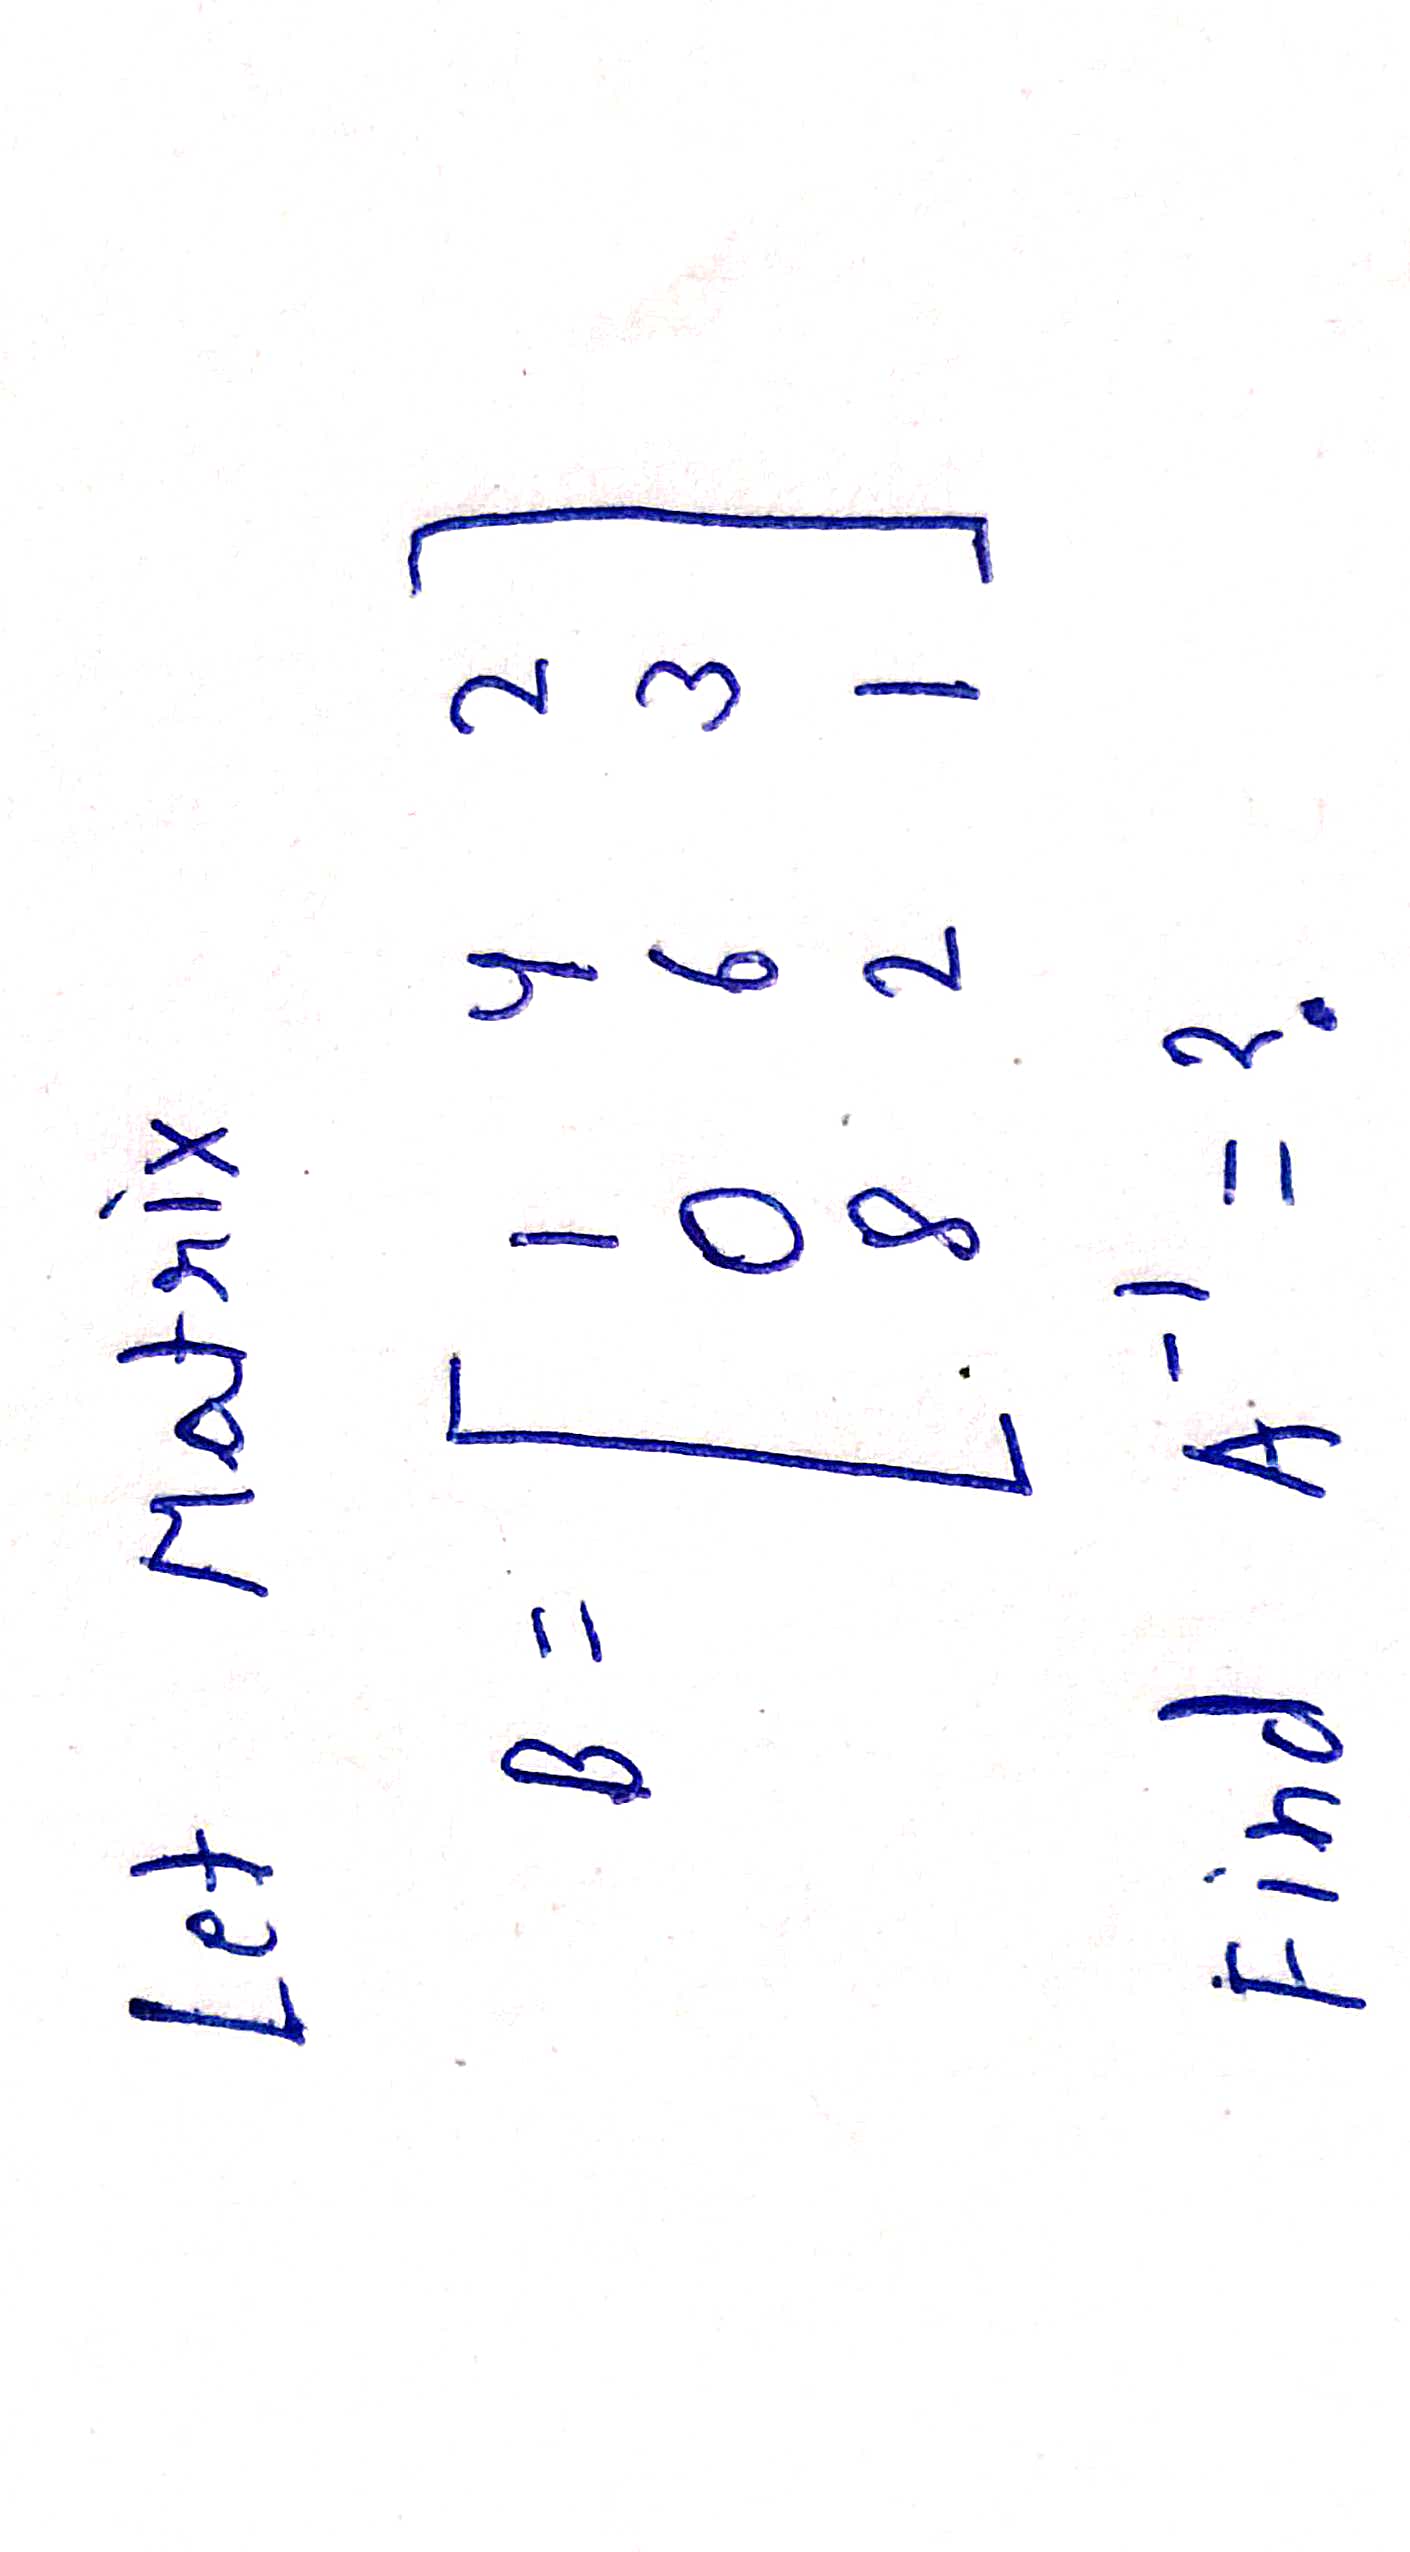 Let Matrix
B = [ 1 4 2
0 6 3
8 2 1 ]
Find A⁻¹ = ?